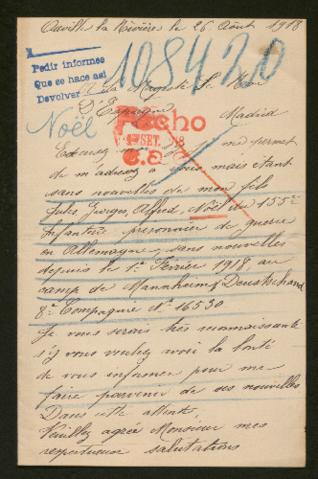 Auville la Rivière le 26 Août 1918
Pedir informes
Que se hace asi
Devolver
108420
A La Majesté Le Roi
D'Espagne Madrid
Noël
Fecho
SET.
Excusez me permet
de m'adresser à vous mais étant
sans nouvelles de mon fils
Jules, Georges, Alfred, Noël du 155e
Infanterie prisonnier de guerre
en Allemagne, sans nouvelles
depuis le 1er Février 1918, au
camp de Mannheim Deutschand
8e Compagnie No 16530
Je vous serais très reconnaissante
si vous voulez avoir la bonté
de vous informer pour me
faire parvenir de ses nouvelles
Dans cette attente,
Veuillez agréé Monsieur mes
respectueuse salutations